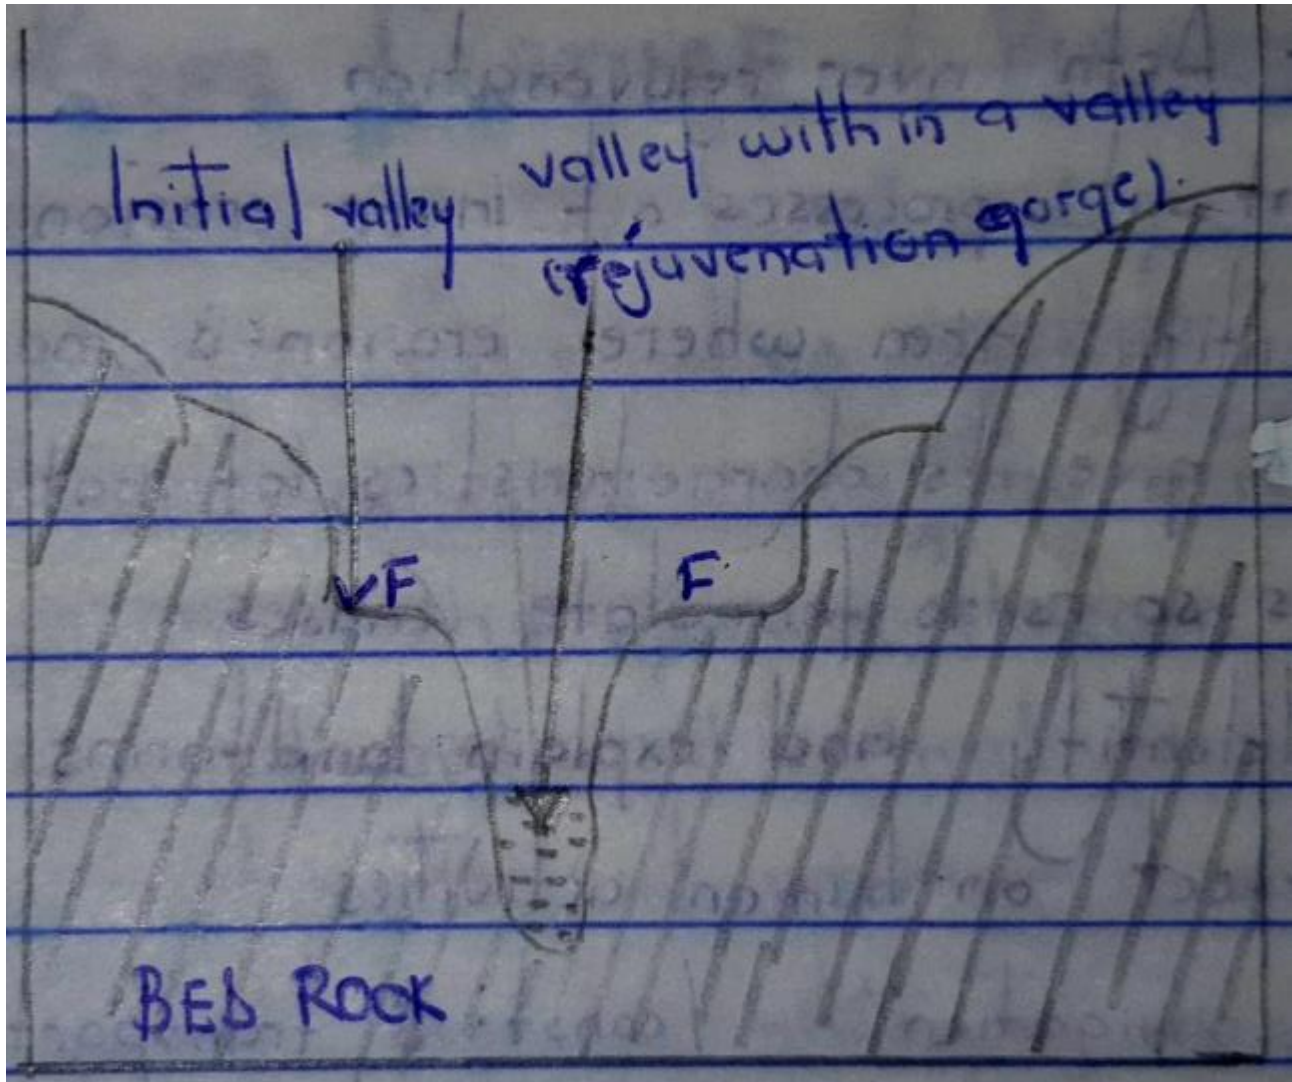 Initial valley
valley within a valley
(rejuvenation gorge).
F
F
BED ROCK